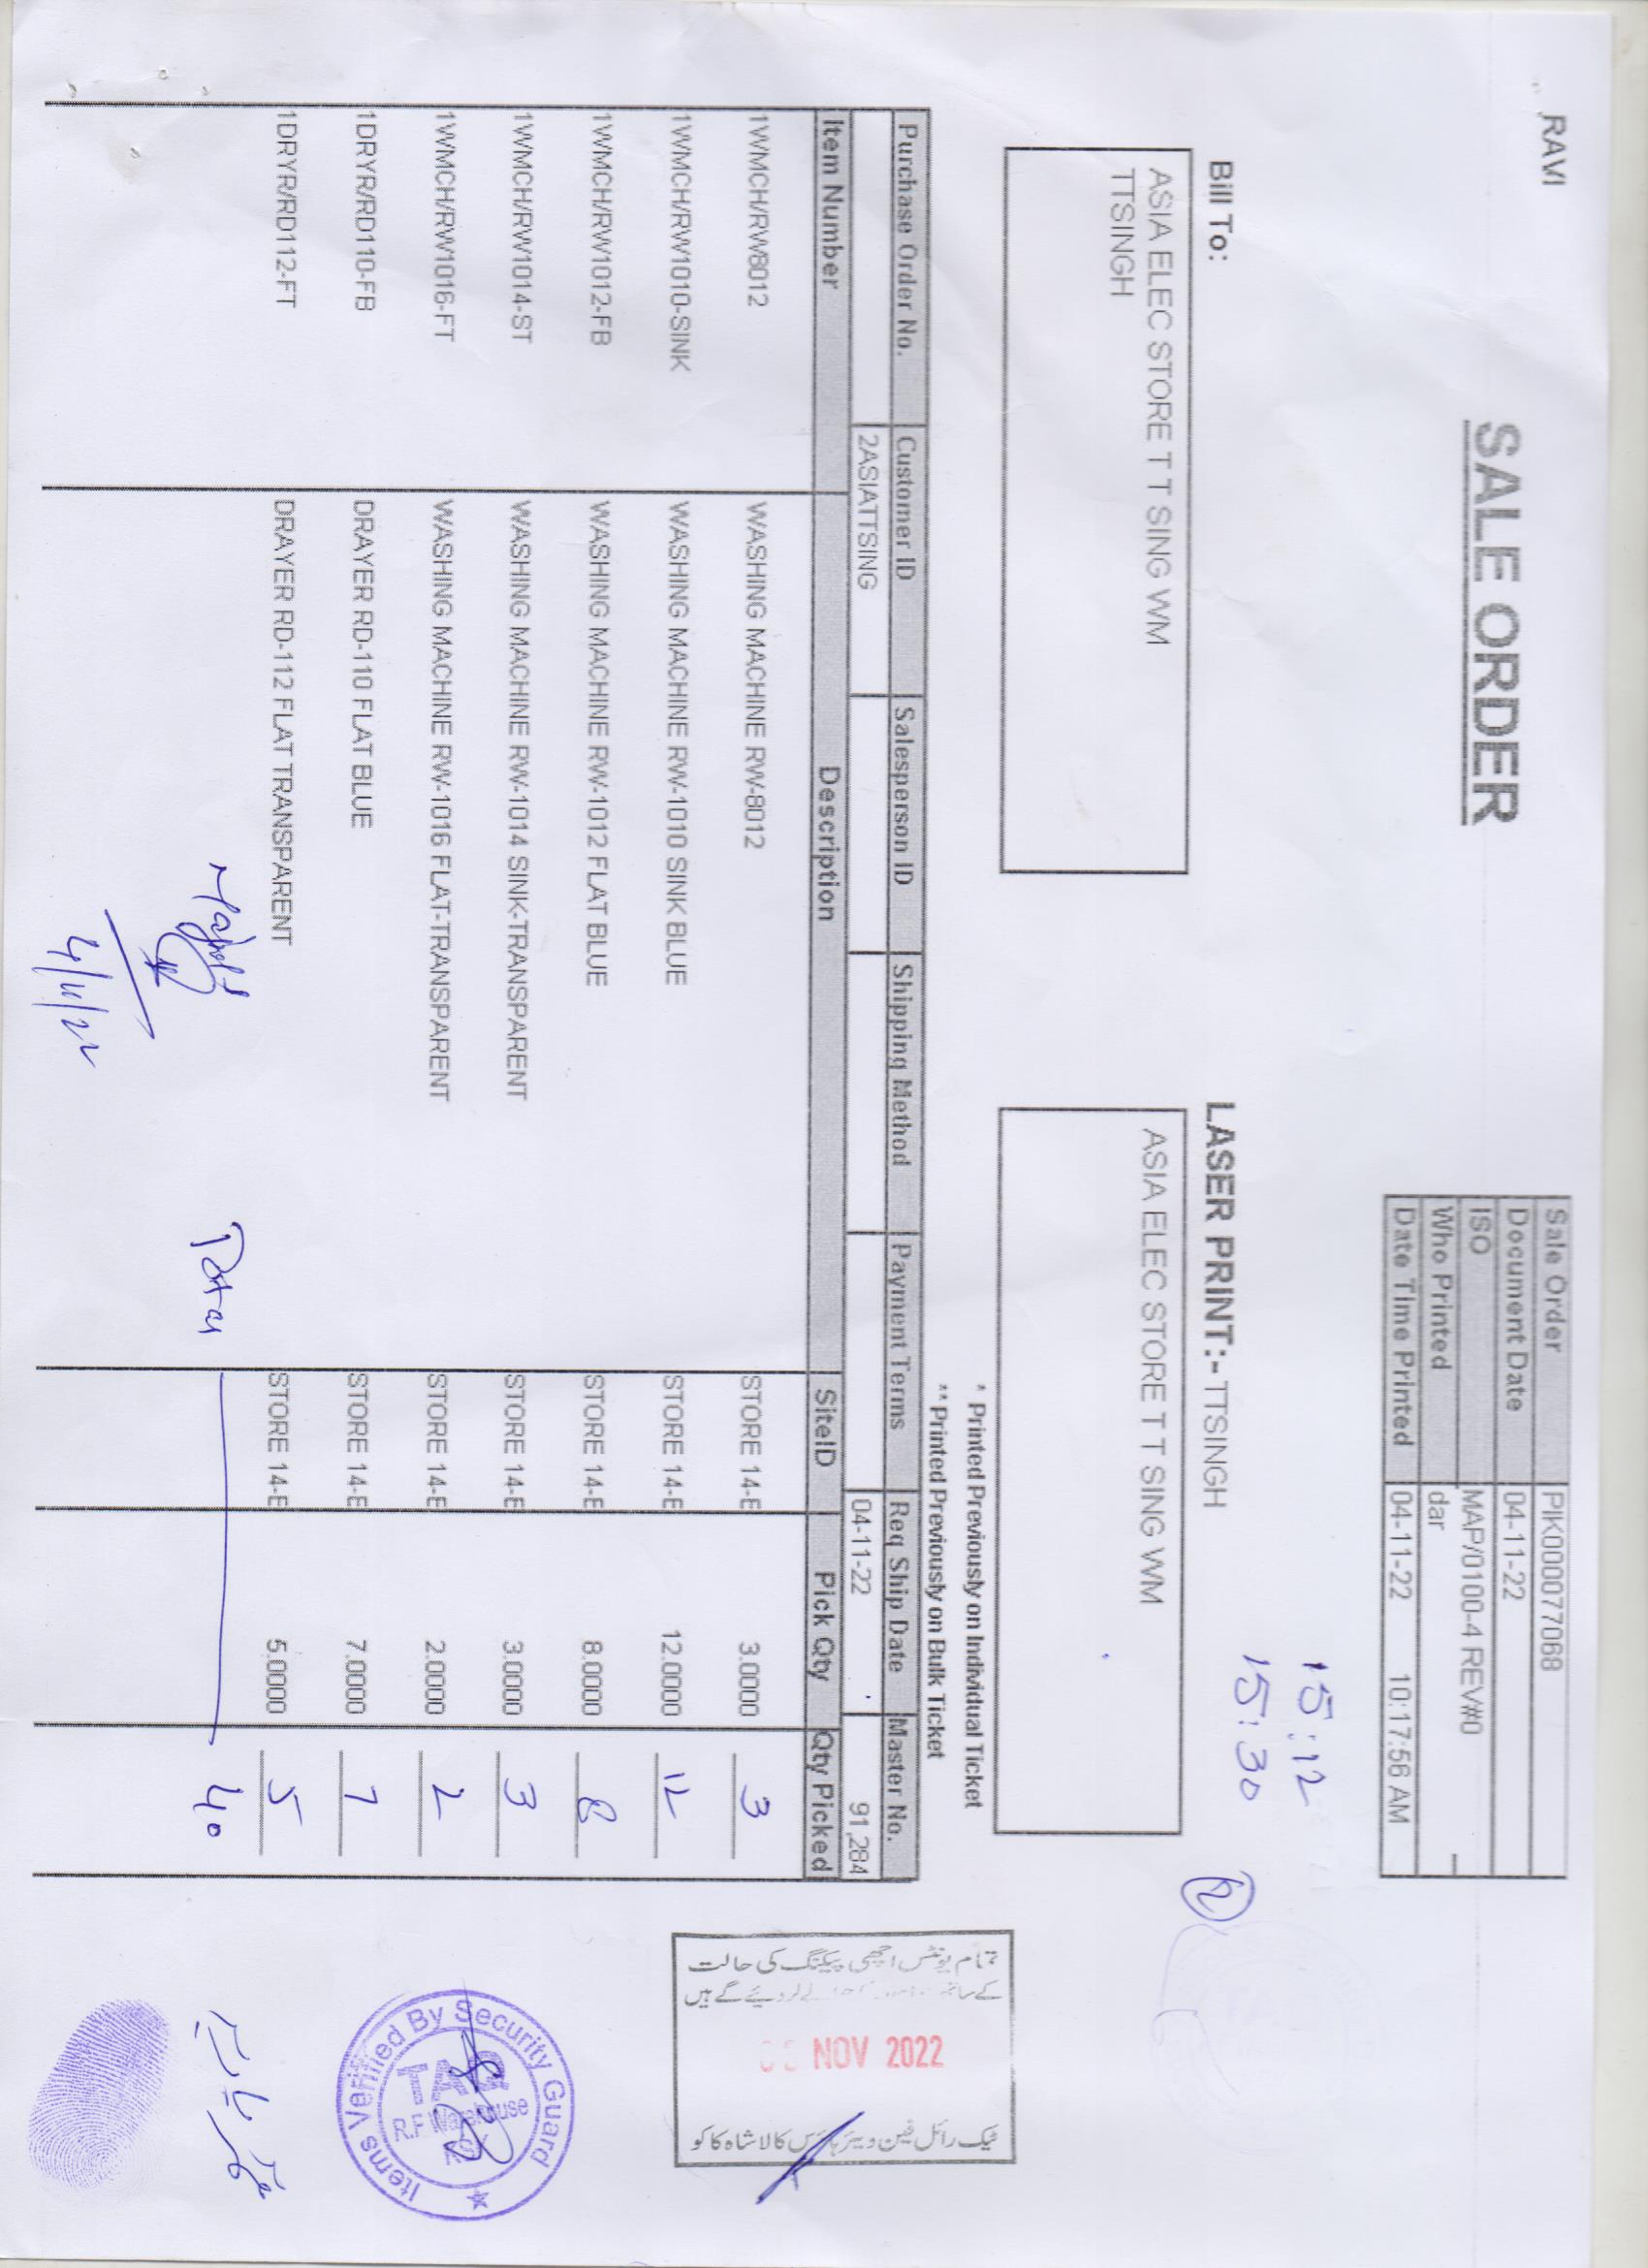 RAVI
SALE ORDER
Sale Order PIK000077068
Document Date 04-11-22
ISO MAP/0100-4 REV#0
Who Printed dar
Date Time Printed 04-11-22 10:17:56 AM
15:12
15:30
2
Bill To:
ASIA ELEC STORE T T SING WM
TTSINGH
LASER PRINT:- TTSINGH
ASIA ELEC STORE T T SING WM
* Printed Previously on Individual Ticket
** Printed Previously on Bulk Ticket
Purchase Order No. Customer ID Salesperson ID Shipping Method Payment Terms Req Ship Date Master No.
2ASIATTSING 04-11-22 91,284
Item Number Description SiteID Pick Qty Qty Picked
1WMCH/RW8012 WASHING MACHINE RW-8012 STORE 14-E 3.0000 3
1WMCH/RW1010-SINK WASHING MACHINE RW-1010 SINK BLUE STORE 14-E 12.0000 12
1WMCH/RW1012-FB WASHING MACHINE RW-1012 FLAT BLUE STORE 14-E 8.0000 8
1WMCH/RW1014-ST WASHING MACHINE RW-1014 SINK-TRANSPARENT STORE 14-E 3.0000 3
1WMCH/RW1016-FT WASHING MACHINE RW-1016 FLAT-TRANSPARENT STORE 14-E 2.0000 2
1DRYR/RD110-FB DRAYER RD-110 FLAT BLUE STORE 14-E 7.0000 7
1DRYR/RD112-FT DRAYER RD-112 FLAT TRANSPARENT STORE 14-E 5.0000 5
40
4/11/22
NOV 2022
Items Verified By Security Guard
TAG
R.F Warehouse